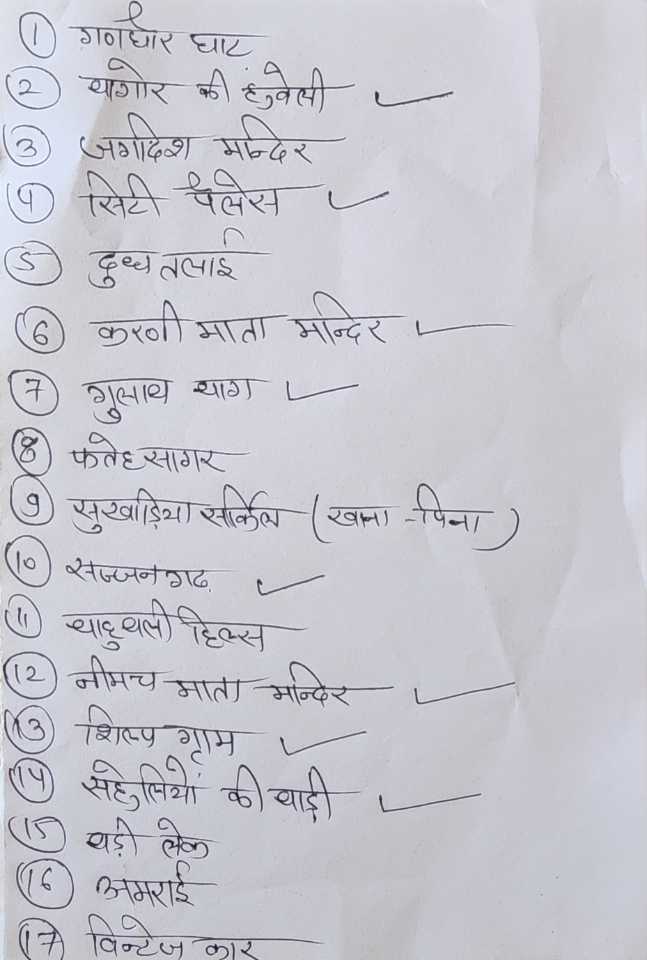 ① गणघोर घाट
② बागोर की हवेली
③ जगदिश मन्दिर
④ सिटी पैलेस
⑤ दुध तलाई
⑥ करणी माता मन्दिर
⑦ गुलाब बाग
⑧ फतेहसागर
⑨ सुखाड़िया सर्किल (खाना-पिना)
⑩ सज्जनगढ़
⑪ बाहुबली हिल्स
⑫ नीमच माता मन्दिर
⑬ शिल्प ग्राम
⑭ सहेलियों की बाड़ी
⑮ बड़ी लेक
⑯ अमराई
⑰ विन्टेज कार